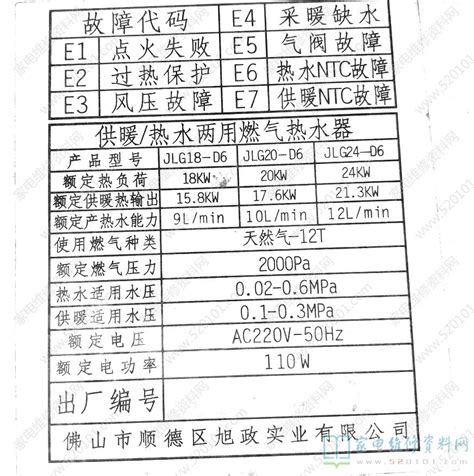 故障代码 E4 采暖缺水
E1 点火失败 E5 气阀故障
E2 过热保护 E6 热水NTC故障
E3 风压故障 E7 供暖NTC故障
供暖/热水两用燃气热水器
产品型号 JLG18-D6 JLG20-D6 JLG24-D6
额定热负荷 18KW 20KW 24KW
额定供暖热输出 15.8KW 17.6KW 21.3KW
额定产热水能力 9L/min 10L/min 12L/min
使用燃气种类 天然气-12T
额定燃气压力 2000Pa
热水适用水压 0.02-0.6MPa
供暖适用水压 0.1-0.3MPa
额定电压 AC220V-50Hz
额定电功率 110W
出厂编号
佛山市顺德区旭政实业有限公司
家电维修资料网
www.520101.com